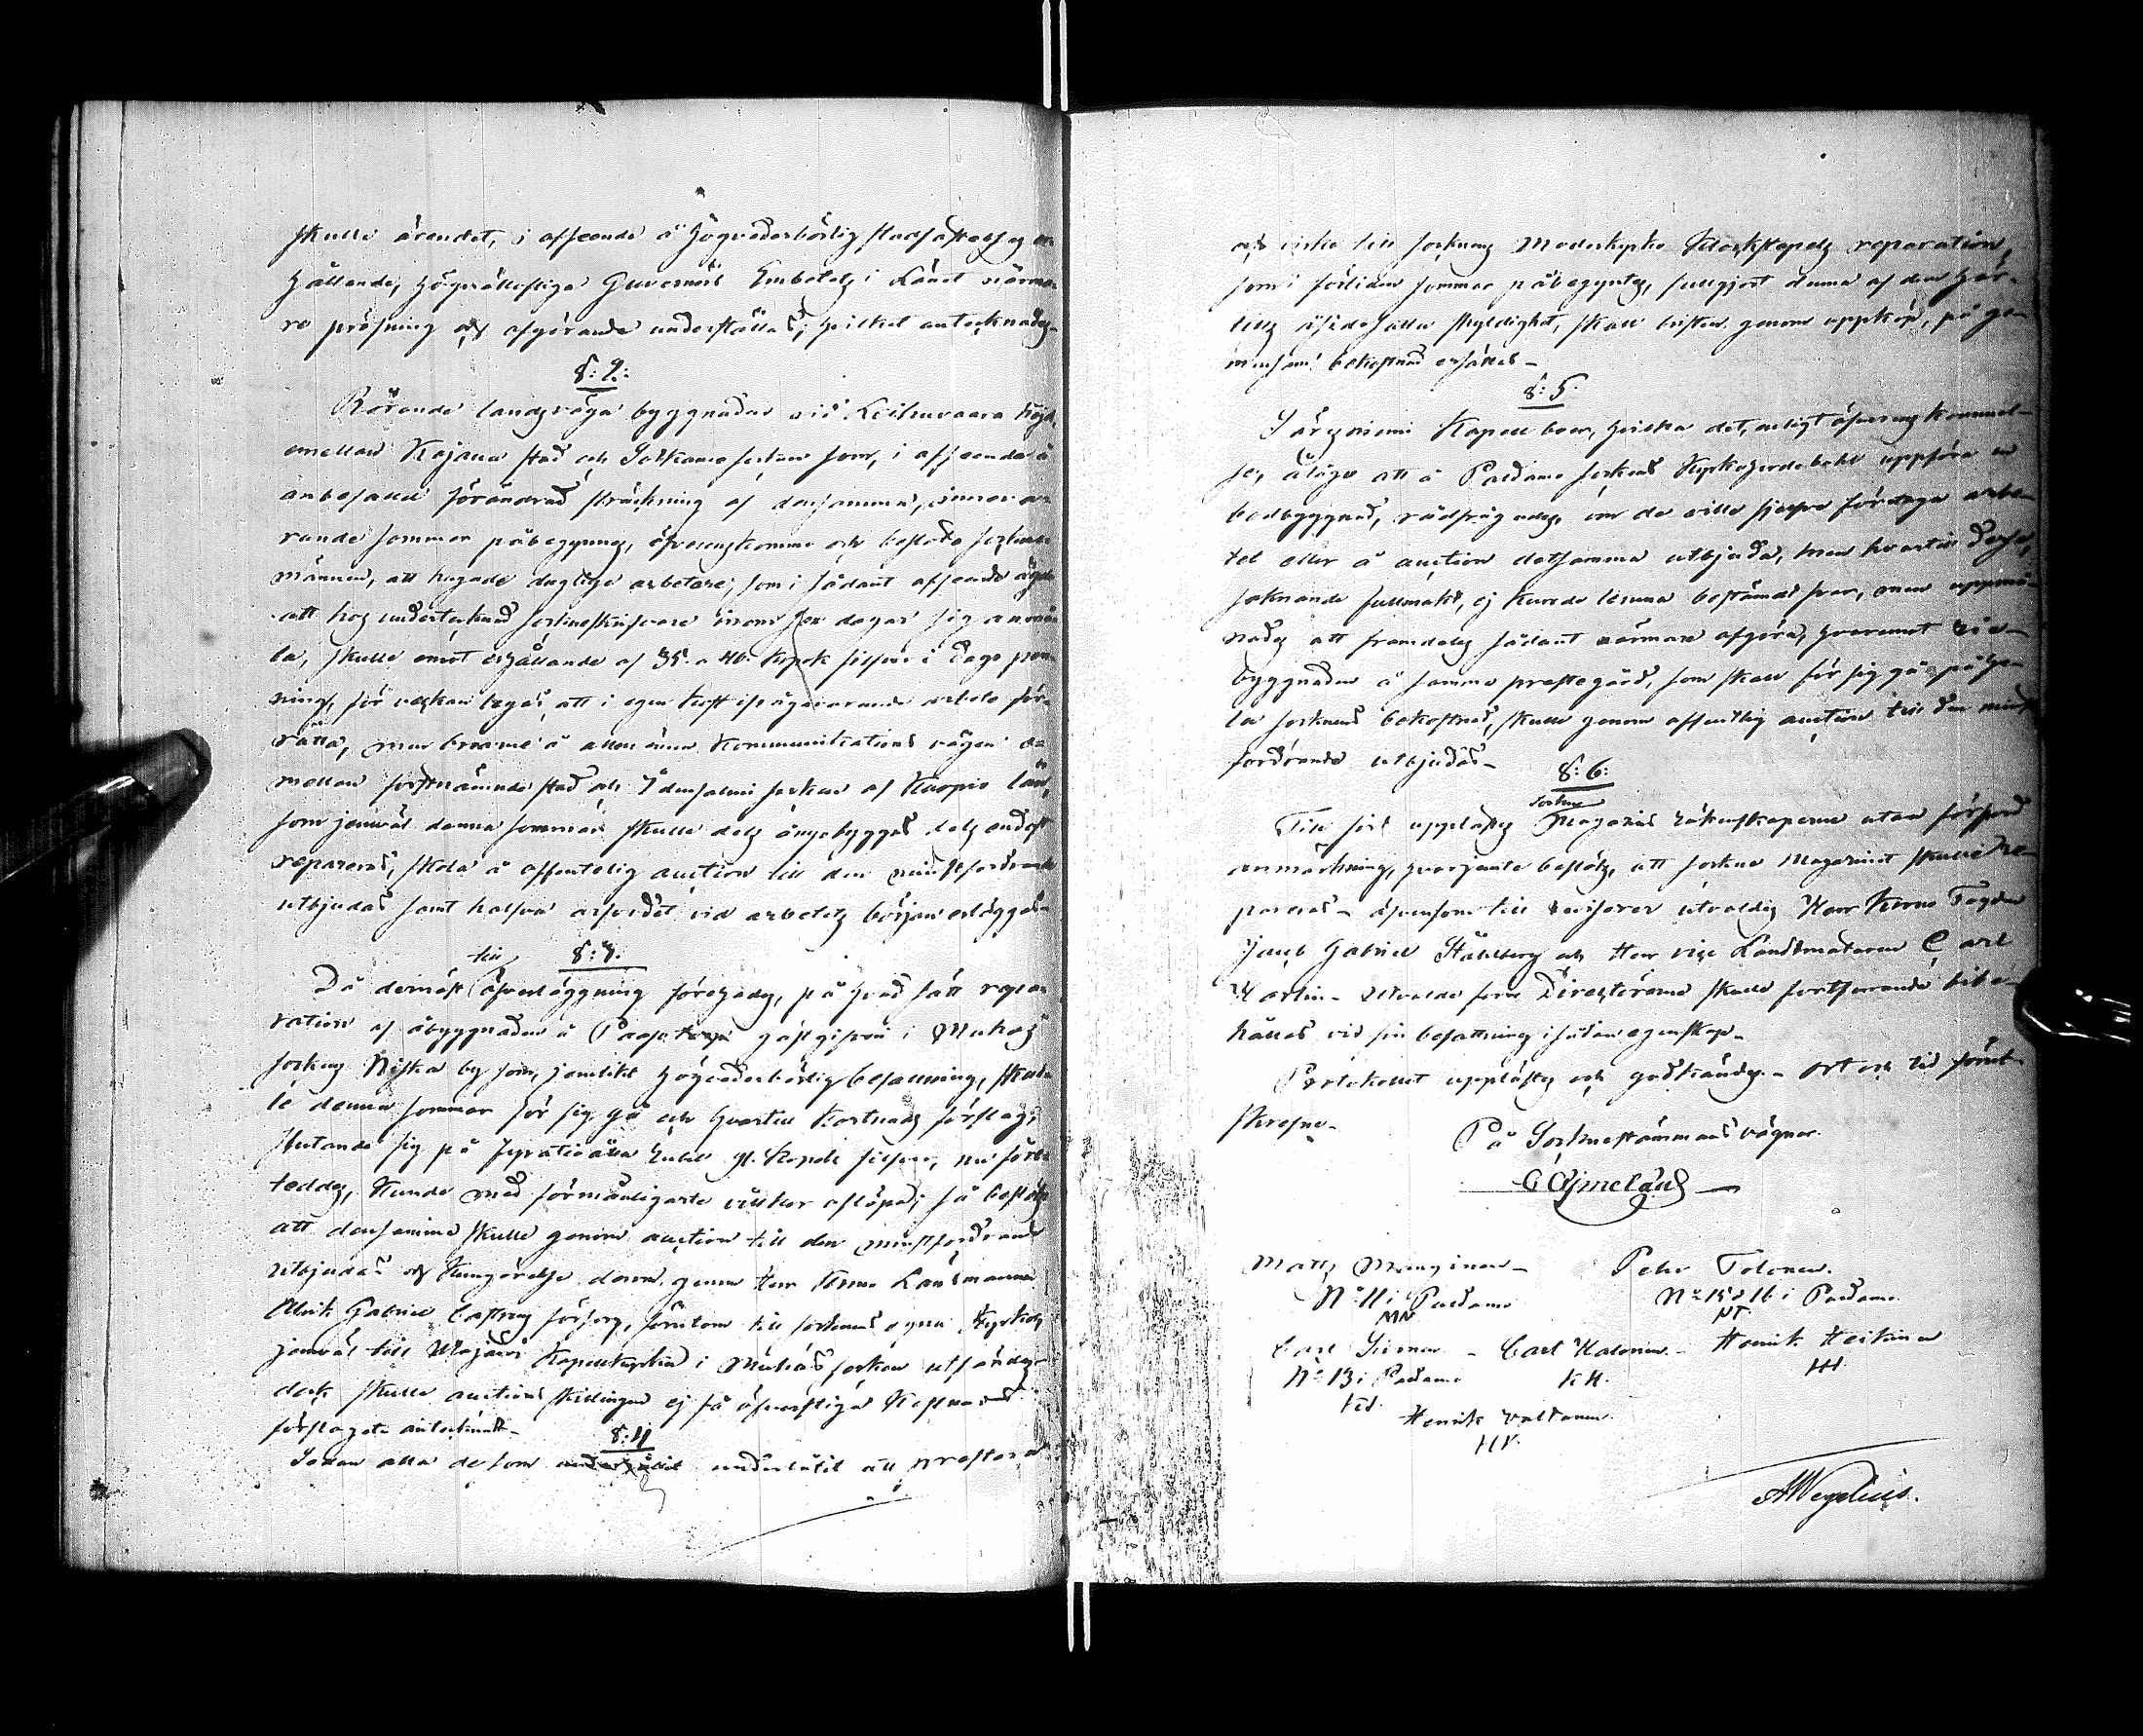 skulle ärendet, i afseende å Högvederbörlig stadfästelses er
hållande, Högvällofliga Guvernörs Embetets i Länet närma-
re pröfning och afgörande underställas; hvilket antecknades-
§: 2:
Rörande landsväga byggnaden vid Leihuvaara höjd,
emellan Kajana stad och Sotkamo socken som, i afseende å
anbefalld förändrad sträckning af densamma, innevar
rande sommar påbegynnes, öfverenskommo och beslöto sockne
männen, att hugade daglige arbetare, som i sådant afseende ägde
att hos undertecknad sockneskrifvare inom sex dagar sig anmä
la, skulle emot erhållande af 35 a 40 kopek silfver i dags pen
ning, för veckan begås, att i egen kost ifrågavarande arbete för-
rätta, men broarne å allmänna Kommunikations vägen e-
mellan förstnämnde stad och Idensalmi socken af Kuopio län,
som jemväl denna sommar skulle dels ånyo byggas dels endast
repareras, skola å offentelig auction till den minstfordrande
utbjudas samt halfva arfvodet vid arbetets början erläggas-
§: 3.
till
Då dernäst öfverläggning företogs, på hvad sätt repa-
ration af åbyggnaden å gästgifveri i Muhos
sockens Niska by som, jemlikt högvederbörlig befallning, skul-
le denna sommar för sig gå och hvartill Kostnads förslag,
slutande sig på Rubel 91. Kopek silfver, nu före-
teddes, kunde med förmånligaste villkor aflöpa; så beslöts
att densamma skulle genom auction till den minstfordrande
utbjudas och Kungörelse derom genom Herr Krono Länsmannen
Ulrik Gabriel Castrens försorg, förutom till sockens egna Kyrka,
jemväl till Utajärvi Kapellkyrka i Muhos socken utfärdas-
dock skulle auctions skillingen ej få öfverstiga Kostnads
förslaget antecknadt-
§: 4
Sedan alla de som underlåtit att prestera
och virke till socknens Moderkyrko Klockstapels reparation,
som i förliden sommar påbegyntes, fullgjort denna af dem här-
tills åsidosatta skyldighet, skall bristen genom uppköp, på ge-
mensam bekostnad ersättas-
§: 5.
Säresniemi Kapell boer, hvilka det, enligt öfverenskommel-
se, ålåge att å Paldamo sockens Kyrkoherdeboställe uppföra en
bodbyggnad, rådfrågades, om de ville sjelfve företaga arbe-
tet eller å auction detsamma utbjuda, men hvartill desse,
saknande fullmakt, ej kunde lemna bestämdt svar, men uppma-
nades att framdeles sådant närmare afgöra, hvaremot
byggnaden å samma prestegård, som skall för sig gå på he-
la socknens bekostnad, skulle genom offentlig auction till den minst
fordrande utbjudas-
§: 6:
Sockne
Till först upplästes Magasins räkenskaperne utan försport
anmärkning, hvarjemte beslöts, att sockne Magasinet skulle re-
pareras- äfvensom till revisorer utvaldes Herr Krono Fogden
Jacob Gabriel Ståhlberg och Herr vice Landtmätaren Carl
Martin- Utvalde förre Direktörerne skulle fortfarande bibe-
hållas vid sin befattning i sådan egenskap-
Protokollet upplästes och godkändes- ort och tid förut-
skrefne-
På Socknestämmans vägnar.
C Ajmelæus
Matts Manginen-
No 11 i Paldamo
MM
Petter Tolonen.
No 15 & 16 i Paldamo
PT
Carl -
No 13 i Paldamo
Carl Halonen-
KH.
Henrik Heikinen
HH
Henrik Valtanen.
HV.
AWegelius.